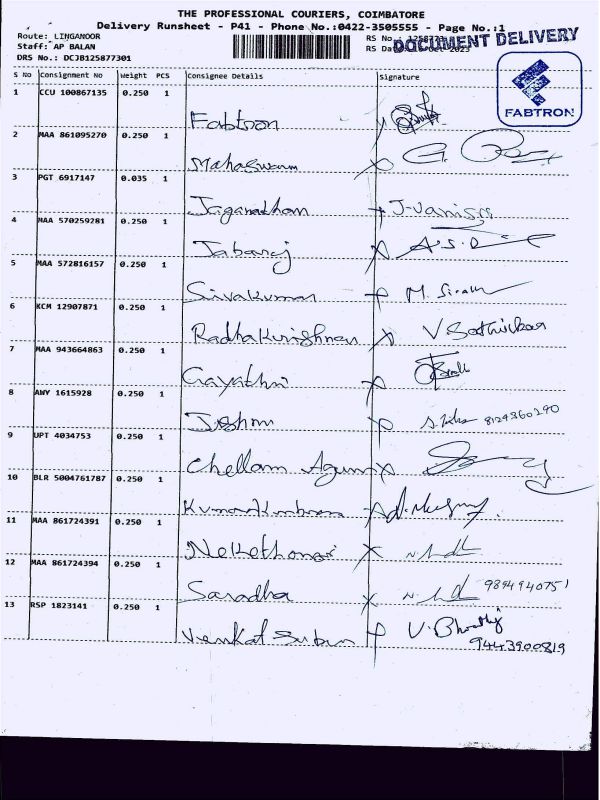 THE PROFESSIONAL COURIERS, COIMBATORE
Delivery Runsheet - P41 - Phone No.:0422-3505555 - Page No.:1
Route: LINGANOOR
RS No.:
Staff: AP BALAN
RS Da 2023
DRS No.: DCJB125877301
DOCUMENT DELIVERY
S No Consignment No Weight PCS Consignee Details Signature
FABTRON
1 CCU 100867135 0.250 1
Fabtron
2 MAA 861095270 0.250 1
Maheswaran
3 PGT 6917147 0.035 1
Jaganathan J-Vanisri
4 MAA 570259281 0.250 1
Jabaraj A.S.D
5 MAA 572816157 0.250 1
Sivakumar M.
6 KCM 12907871 0.250 1
Radhakrishnan V
7 MAA 943664863 0.250 1
Gayathri
8 AWY 1615928 0.250 1
8124360290
9 UPT 4034753 0.250 1
Chellam
10 BLR 5004761787 0.250 1
11 MAA 861724391 0.250 1
12 MAA 861724394 0.250 1
Saradha 9894940751
13 RSP 1823141 0.250 1
Venkat V. Bharathy
9443900819